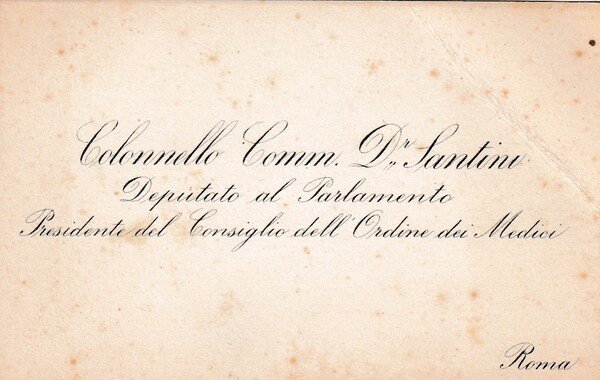 Colonnello Comm. Dr. Santini
Deputato al Parlamento
Presidente del Consiglio dell'Ordine dei Medici
Roma